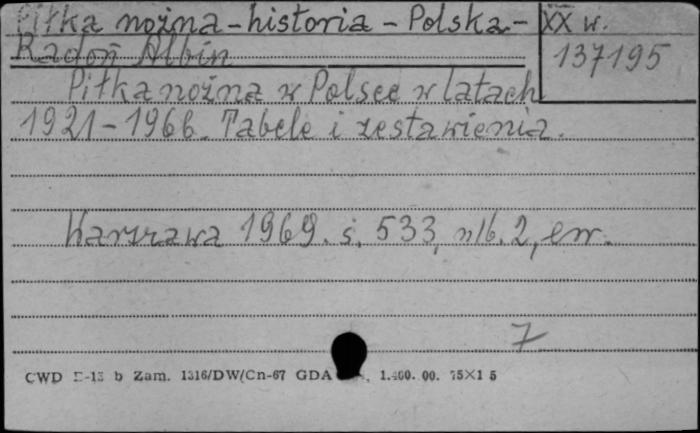 Piłka nożna - historia - Polska - XX w.
Radoń Albin
137195
Piłka nożna w Polsce w latach
1921-1966. Tabele i zestawienia.
Warszawa 1969. s. 533, nlb. 2, err.
7
CWD D-13 b Zam. 1316/DW/Cn-67 GDA 1.400. 00. 75X1 5